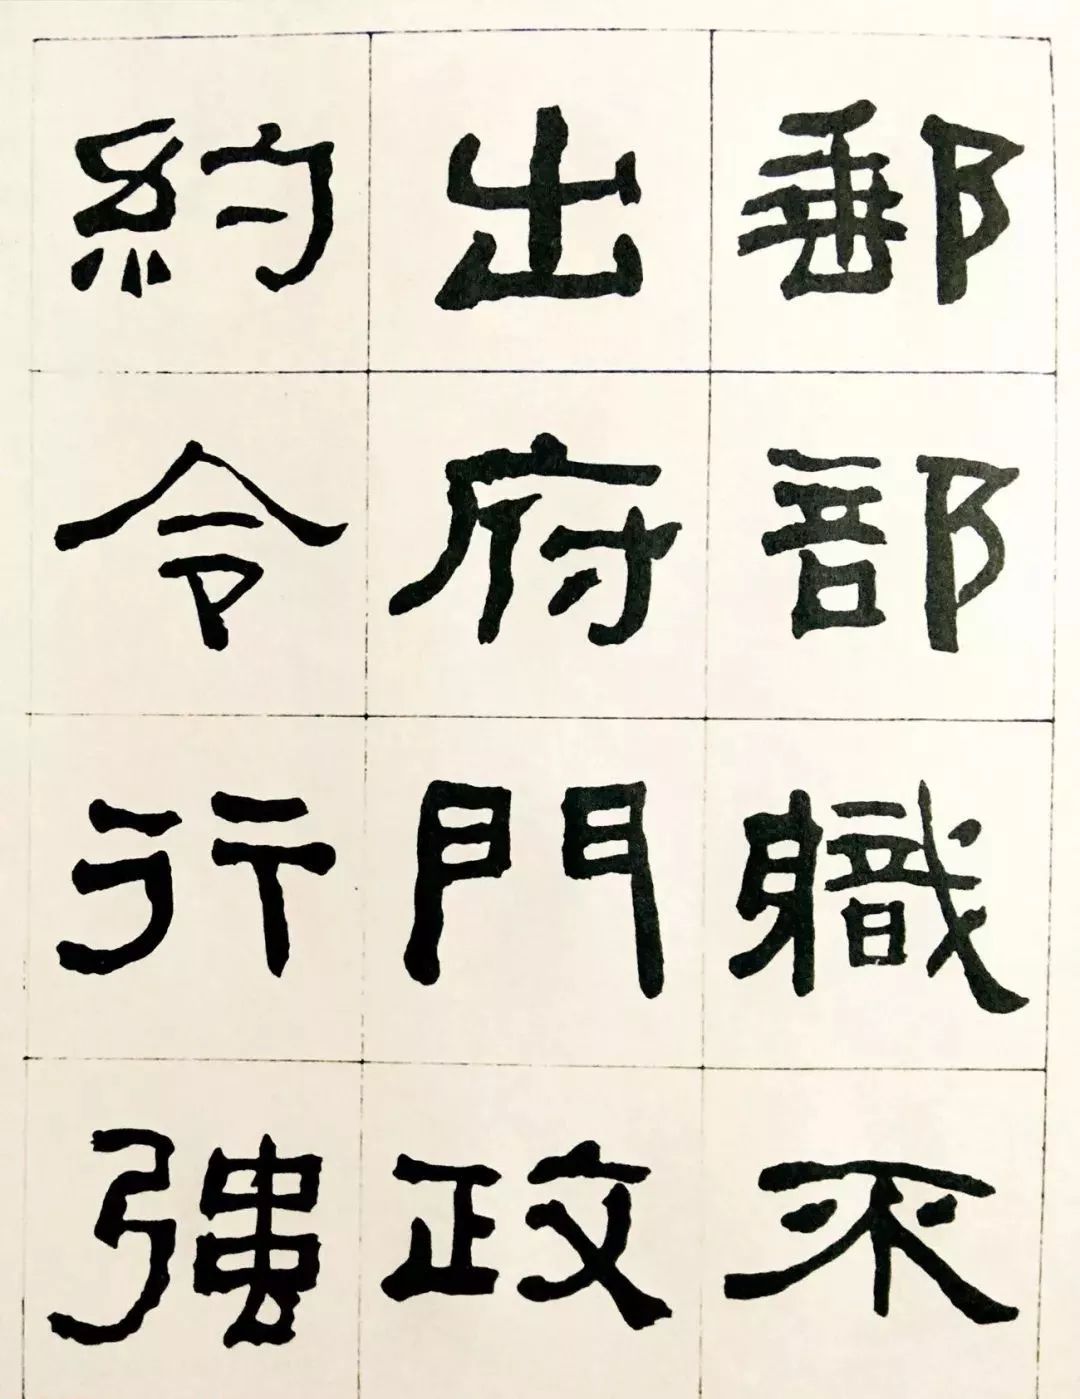 郵部職不
出府門政
約令行強